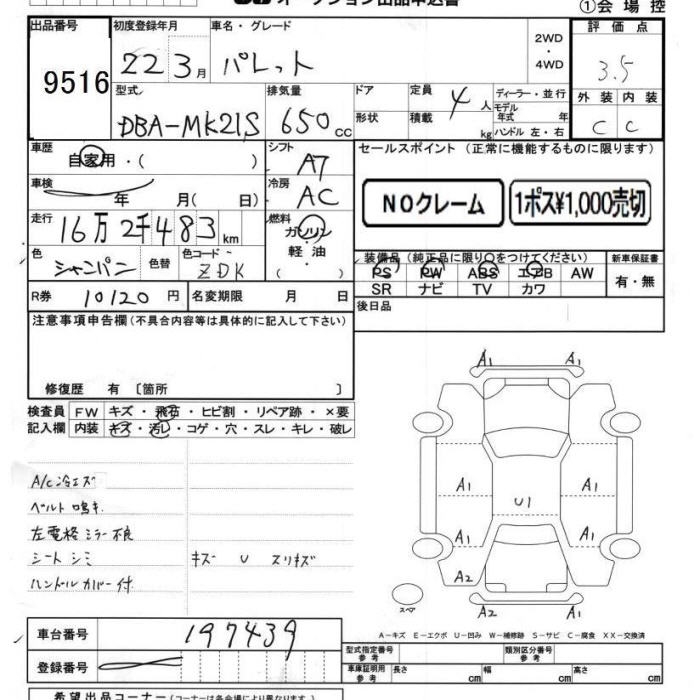 オークション出品申込書
①会場控
出品番号 初度登録年月 車名・グレード 2WD・4WD 評価点
9516 22 3月 パレット 3.5
型式 排気量 ドア 定員 ディーラー・並行 外装 内装
DBA-MK21S 650cc 形状 積載 4人 kg モデル年式 年 ハンドル 左・右 C C
車歴 自家用・( ) シフト A7 セールスポイント (正常に機能するものに限ります)
車検 年 月( 日) 冷房 AC NOクレーム 1ポス¥1,000売切
走行 16万2千483km 燃料 ガソリン 軽油 ( )
色 シャンパン 色替 色コード ZDK 装備品 (純正品に限り○をつけてください) 新車保証書
PS PW ABS エアB AW 有・無
R券 10120円 名変期限 月 日 SR ナビ TV カワ
後日品
注意事項申告欄(不具合内容等は具体的に記入して下さい)
修復歴 有 〔箇所 〕
検査員 FW キズ・飛石・ヒビ割・リペア跡・×要
記入欄 内装 キズ・汚レ・コゲ・穴・スレ・キレ・破レ
A1 A1
A1 A1
U1
A1 A1
A2
A2 A1
A/C冷エズ
ベルト鳴キ
左電格ミラー不良
シートシミ キズ U スリキズ
ハンドルカバー付
スペア
A－キズ E－エクボ U－凹み W－補修跡 S－サビ C－腐食 XX－交換済
車台番号 197439
型式指定番号 参考 類別区分番号 参考
登録番号 車庫証明用 参考 長さ cm 幅 cm 高さ cm
希望出品コーナー(コーナーは各会場により